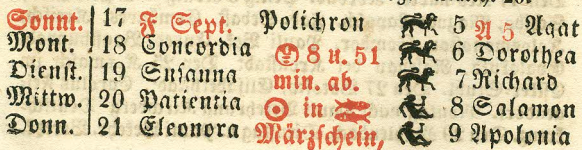 Sonnt. 17 F Sept. Polichron 5 A 5 Agat
Mont. 18 Concordia 8 u. 51 6 Dorothea
Dienst. 19 Susanna min. ab. 7 Richard
Mittw. 20 Patientia in 8 Salamon
Donn. 21 Eleonora Märzschein, 9 Apolonia